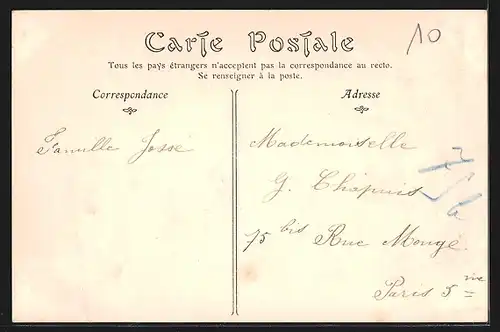 Carte Postale
10
Tous les pays étrangers n'acceptent pas la correspondance au recto.
Se renseigner à la poste.
Correspondance
Adresse
Famille Josse
Mademoiselle
G. Chapuis
75 bis Rue Monge
Paris 5